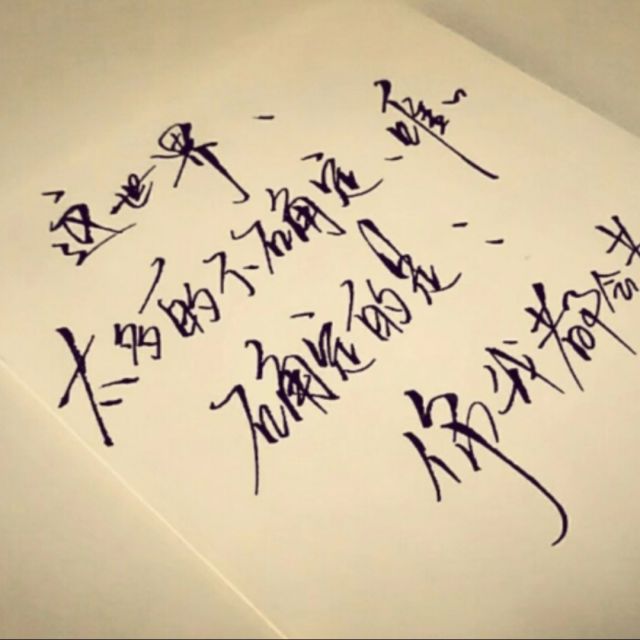 这世界
太多的不确定 唯一
确定的是
你我都会